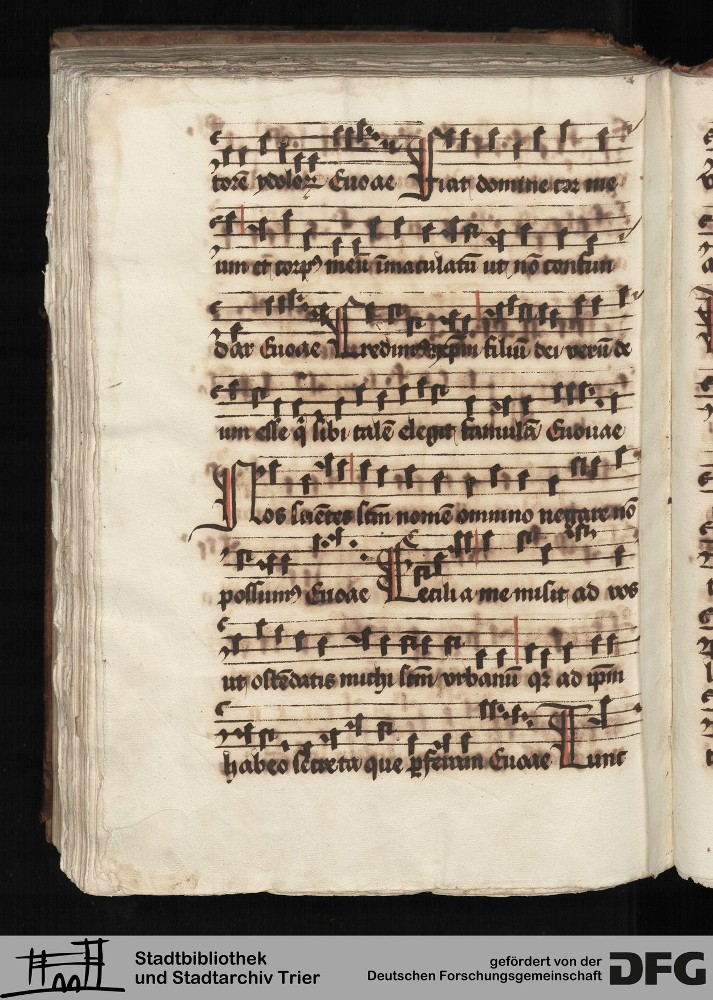 torē ydolorꝝ Euoae Fiat domine cor me
um et corpꝰ meū īmaculatū ut nō confun
dar Euoae Credimꝰ xp̄m filiū dei verū de
um esse q̄ sibi talē elegit famulā Euouae
Nos sciētes sc̄m nomē omnino negare nō
possumꝰ Euoae Cecilia me misit ad vos
ut ostēdatis michi sc̄m vrbanū qꝛ ad ip̄m
habeo secreta que ꝑferam Euoae Tunc
Stadtbibliothek
und Stadtarchiv Trier
gefördert von der
Deutschen Forschungsgemeinschaft
DFG